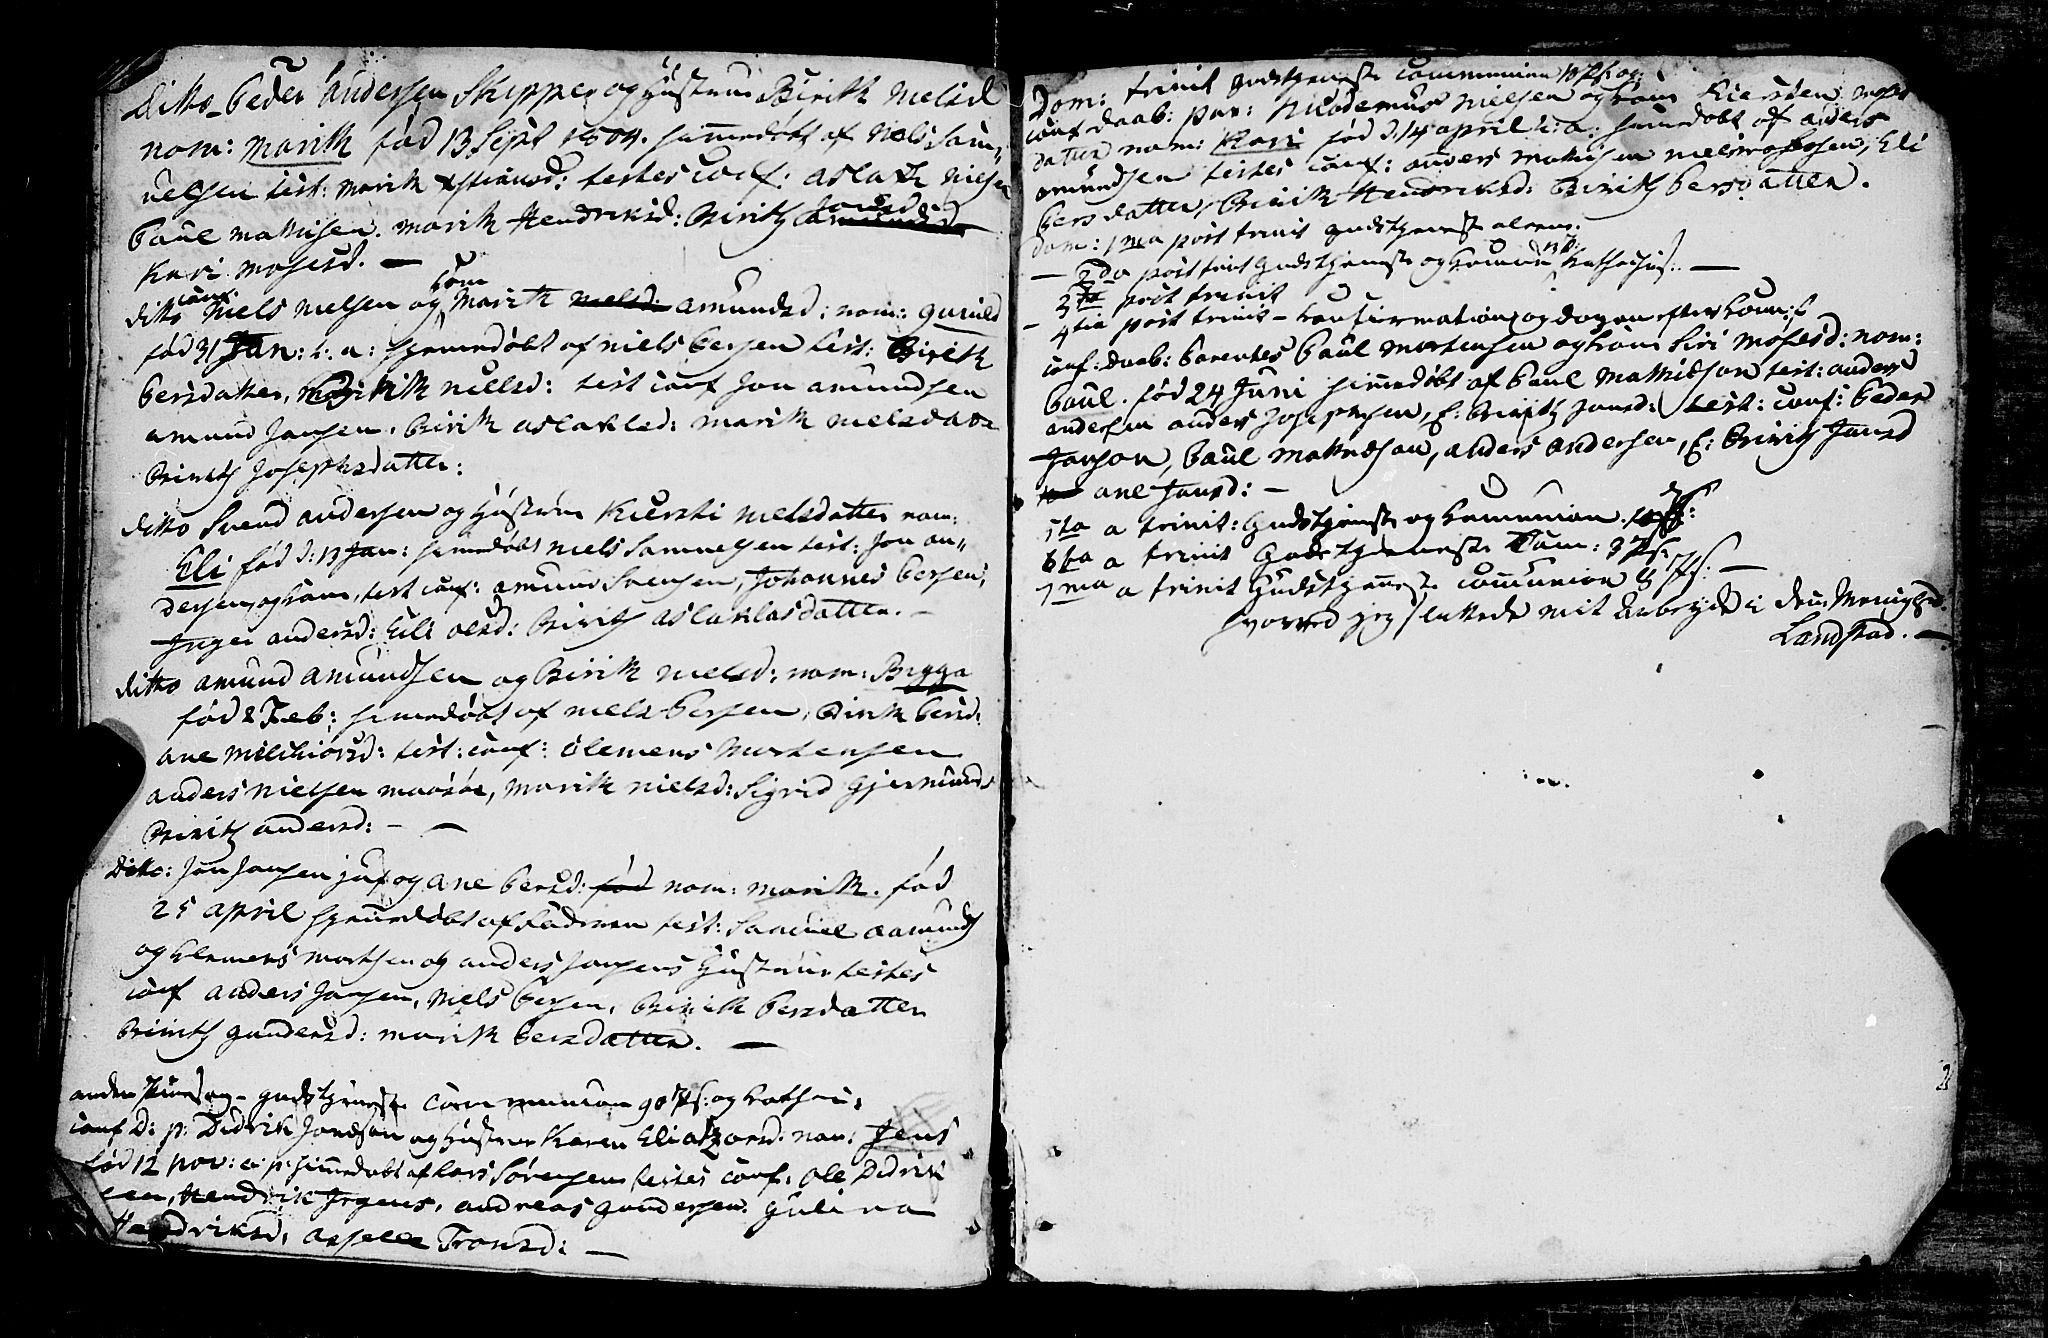 Ditto Peder Andersen Skipper og Hustrue Birith Nielsd
nom: Marith fød 13 Sept 1804. hjemedøbt af Niels Sam„
uelsen test: Marith testes conf: Aslach Nielsen
Paul Mathisen. Marith Hendriksd: Birith Jonsd
Kari Mosesd. —
ditto conf: Niels Nielsen og kone Marith Amundsd: nom: Gunild
fød 31 Jan: h: a: hjemedøbt af Niels Persen test: Birith
Persdatter, Marith Nielsd: test conf Jon Amundsen
Amund Jonsen, Birith Aslaksd: Marith Nielsdatr
Birith Josephsdatter:
ditto Svend Andersen og Hustrue Kiersti Nielsdatter nom:
Eli fød d: 13 Jan: hjemedøbt Niels Samuelsen test: Jon An„
dersen og kone, test conf: Amund Svensen, Johannes Persen,
Inger Andersd: Eli Olsd: Birith Aslaklasdatter. —
ditto Amund Amundsen og Birith Nielsd: nom: Bigga
fød 2 Feb: hjemedøbt af Niels Persen, Birith Persd:
Ane Melchiorsd: test: conf: Clemens Mortensen
Anders Nielsen Maasøe, Marith Nielsd: Sigrid Gjermunds
Birith Andersd: — —
Ditto: Jon Jonsen og Ane Persd: fød nom: Marith. fød
25 April hjemmedøbt af Faderen test: Samuel Aamunds
og Clemens Mortsen og Anders Jonsens Hustrue testes
conf Anders Jonsen, Niels Persen, Birith Persdatter
Birith Gundersd: Marith Persdatter. —
anden Pintsdag - gudstjeneste Communion 90 og
conf D: p: Didrik Jondsøn og Hustrue Karen Eliatzorsd: nom: Jens
fød 12 Nov: a: p: hjemedøbt af Lars Sørensen testes conf: Ole Didrik
sen, Hendrik Irgens, Andreas Gundersen. Gulina
Hendriksd: Tronsd: —
Dom: trinit gudstjeneste Communion 10 og:
conf daab: par: Nicodemus Nielsen og kone Kiersten Moses
datter nom: Kari fød d: 14 April h: a: hjemedøbt af Anders
Amundsen testes conf: Anders Mathisen Niels Eli
Persdatter, Birith Hendriksd: Birith Persdatter.
dom: 1ma post trinit gudstjeneste alene.
— 2da post trinit gudstjeneste og —
— 3tia post trinit
4tia post trinit - konfirmation og dagen efter
conf: daab: Parentes Paul Mortensen og kone Siri Mosesd: nom:
Paul. fød 24 Juni hjemedøbt af Paul Mathisøn test: Anders
Andersen Anders Josephsen, E: Birith Jonsd: test: conf: Peder
Jonsøn, Paul Mathisøn, Anders Andersen, E: Birith Jonsd
Ane Jonsd: —
5ta a trinit: Gudstjeneste og Communion.
6ta a trinit Gudstjeneste Com: 3
7ma a trinit Gudstjeneste Communion —
hvorved jeg sluttede mit Arbeyde i den Menighed.
Landstad. —